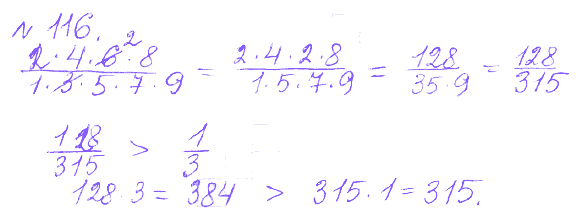 № 116.
2·4·6²·8 / 1·3·5·7·9 = 2·4·2·8 / 1·5·7·9 = 128 / 35·9 = 128 / 315
128 / 315 > 1 / 3
128·3 = 384 > 315·1 = 315.